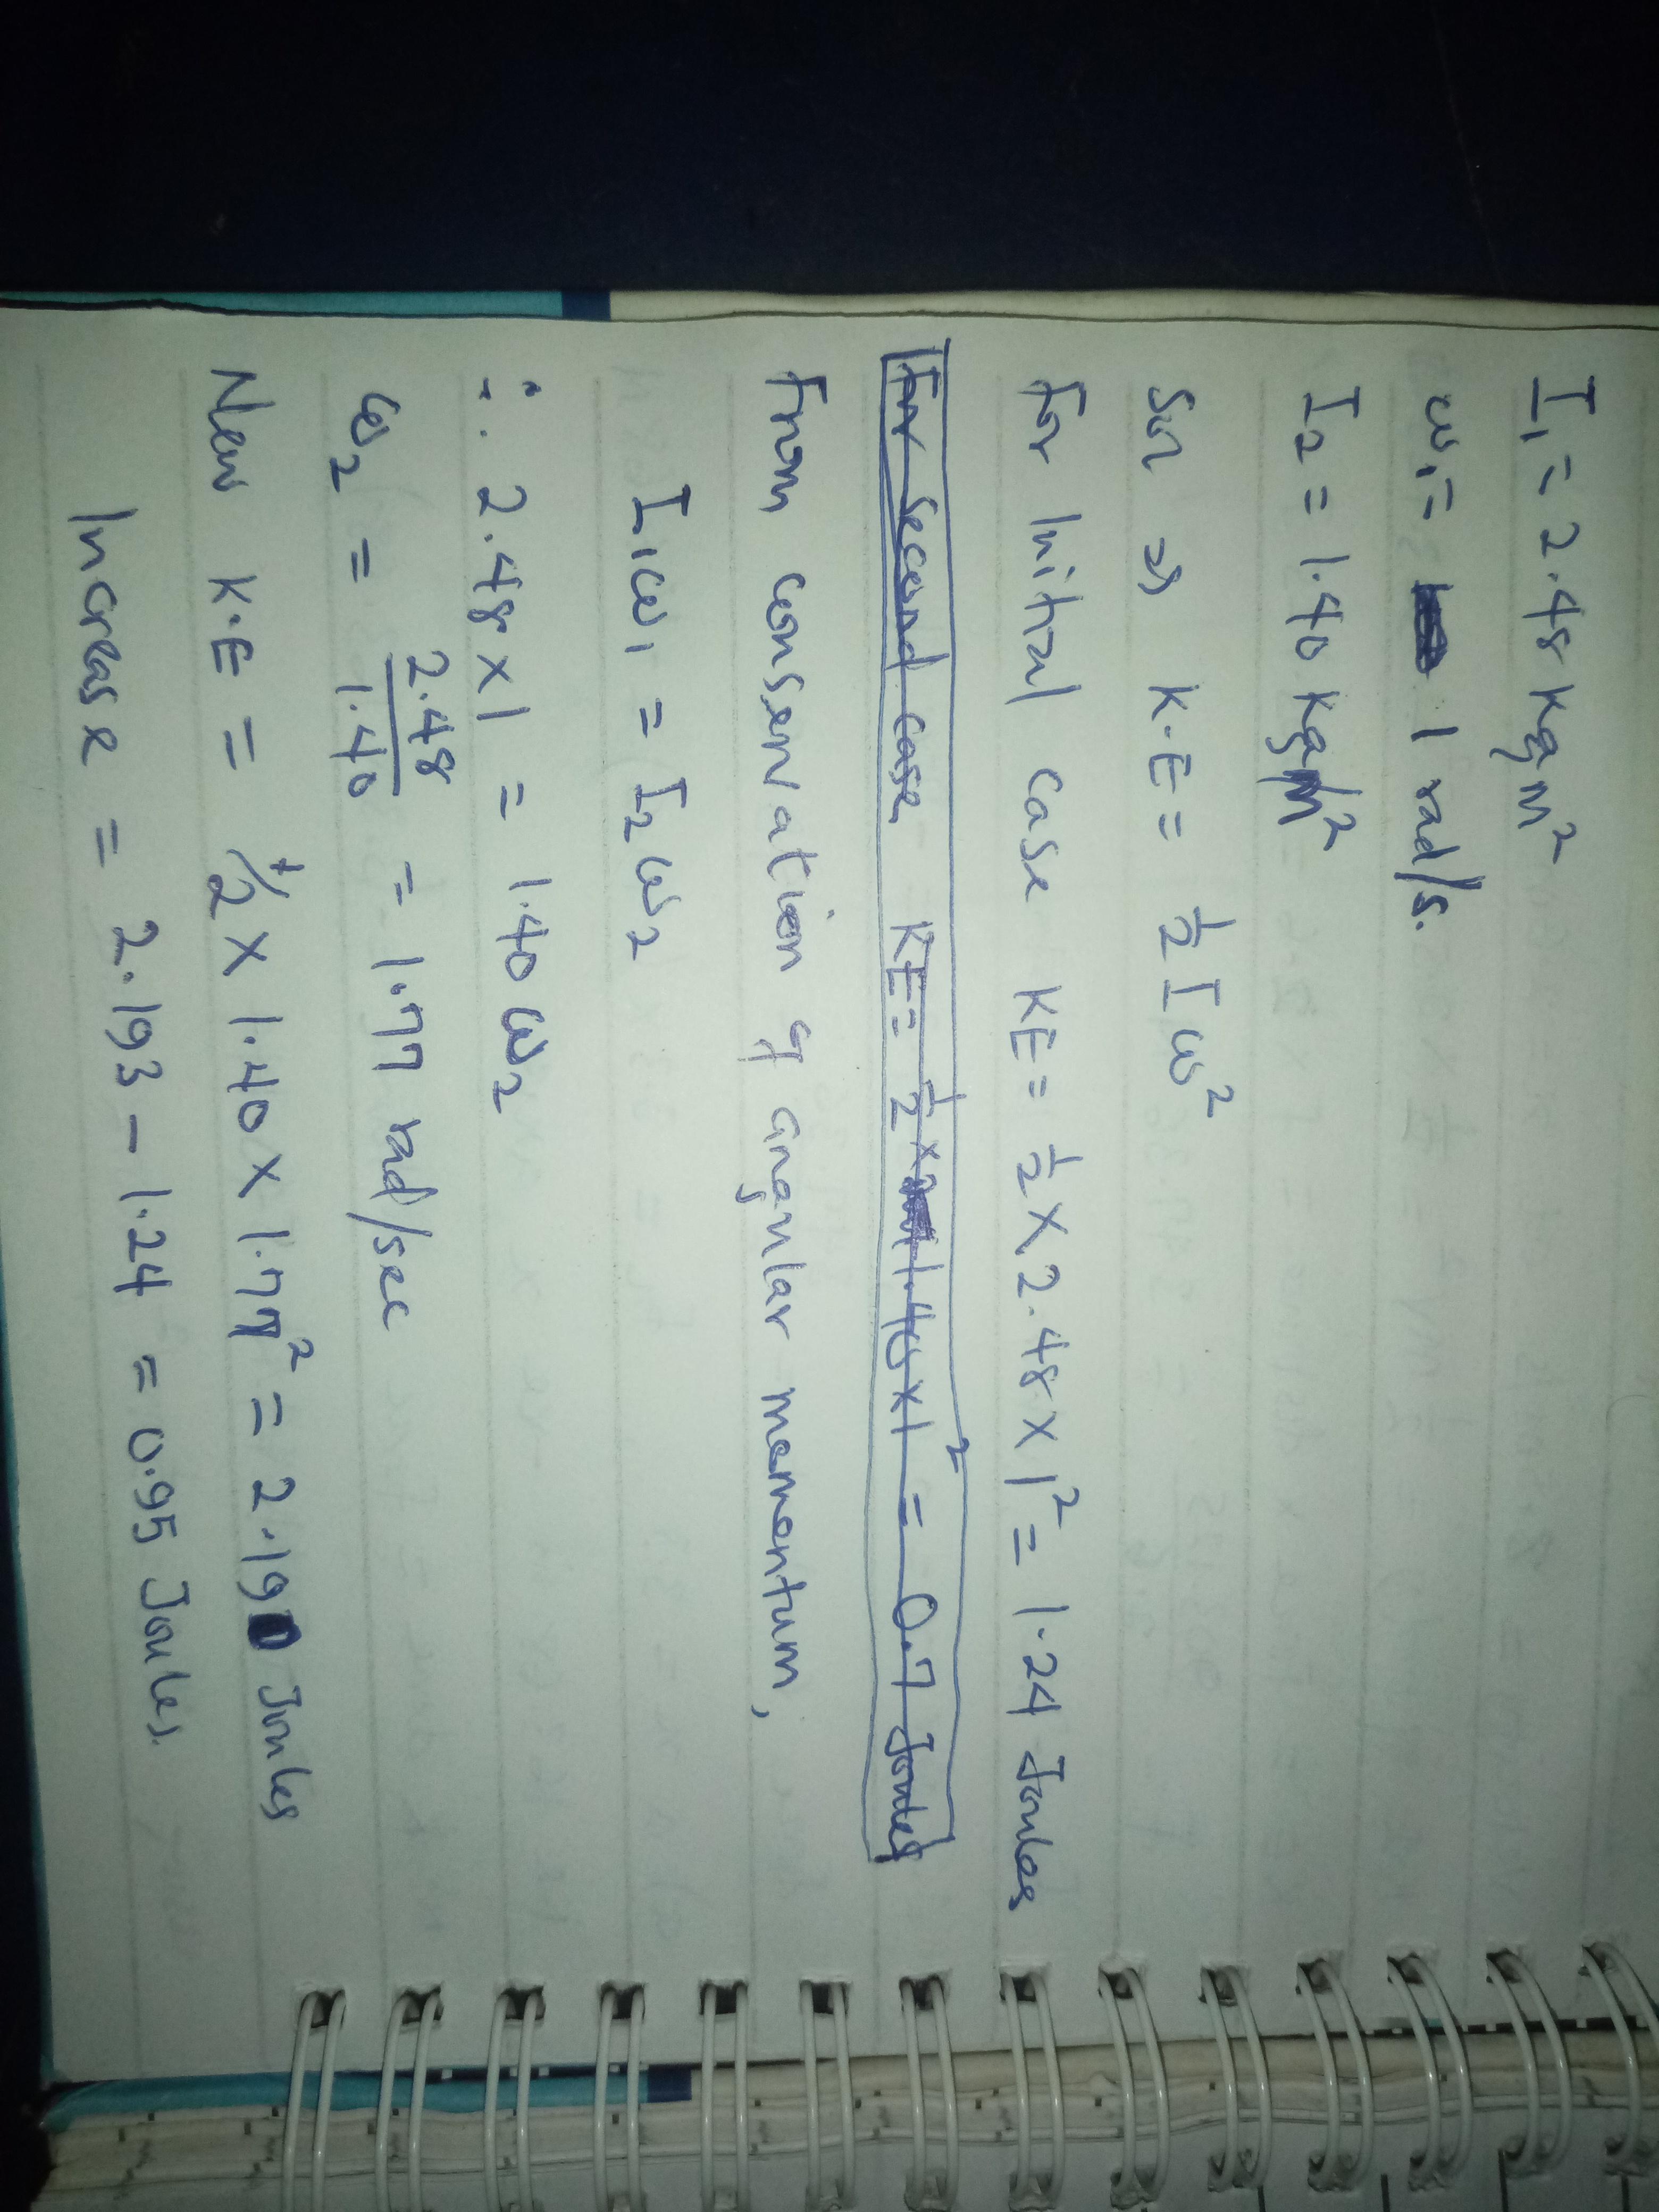 I₁ = 2.48 kgm²
ω₁ = 1 rad/s.
I₂ = 1.40 kgm²
Soln ⇒ K.E = ½ I ω²
For Initial case KE = ½ × 2.48 × 1² = 1.24 Joules
For Second case KE = ½ × 1.40 × 1² = 0.7 Joules
From conservation of angular momentum,
I₁ω₁ = I₂ω₂
∴ 2.48 × 1 = 1.40 ω₂
ω₂ = 2.48/1.40 = 1.77 rad/sec
New K.E = ½ × 1.40 × 1.77² = 2.19 Joules
Increase = 2.193 - 1.24 = 0.95 Joules.